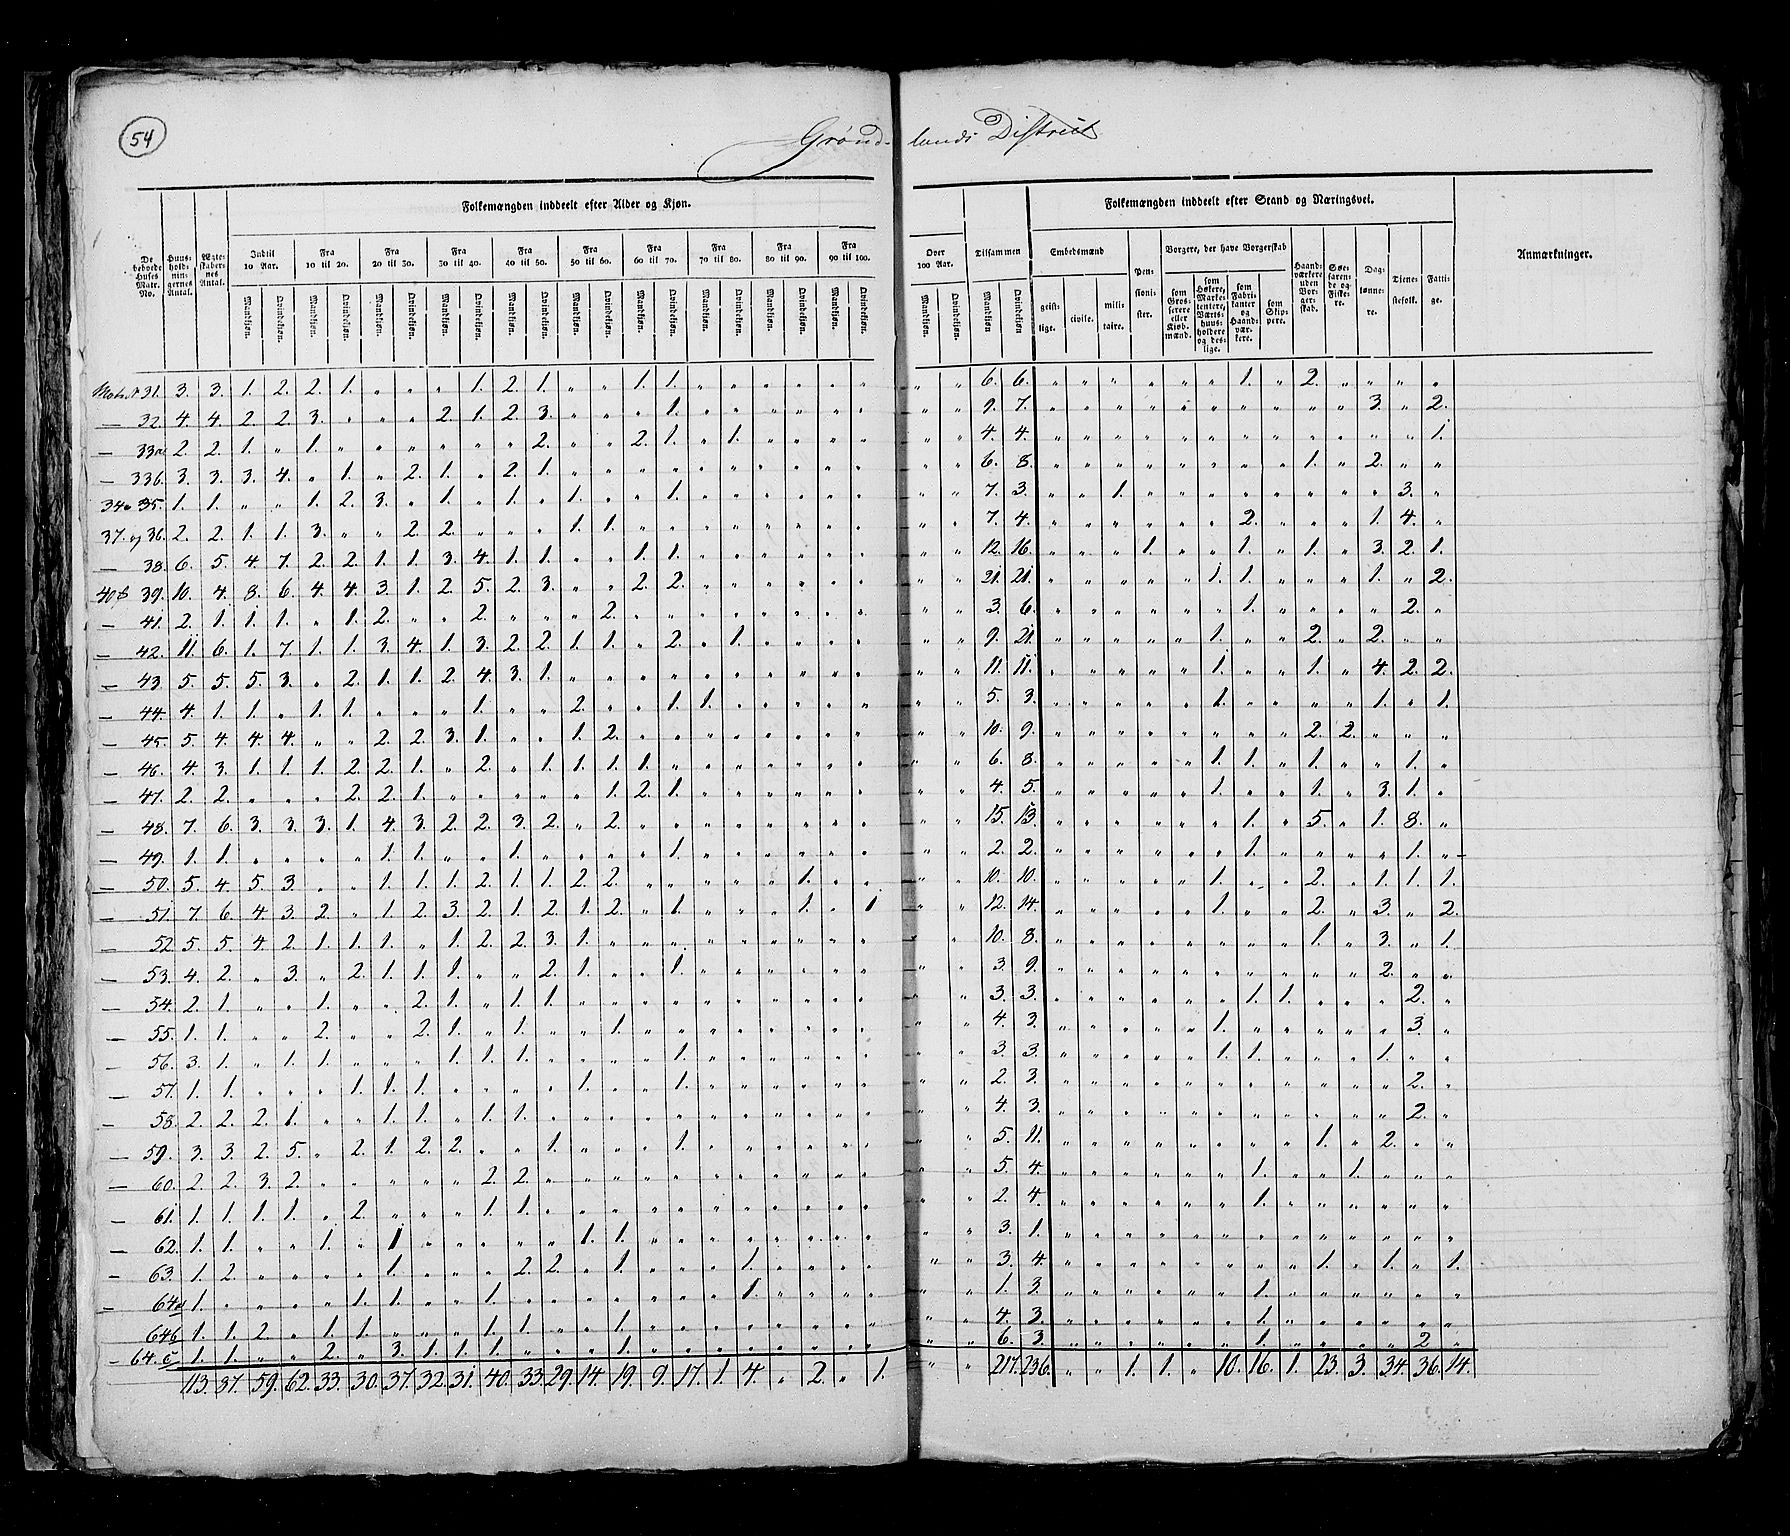 54
Grønd- lands District
Folkemængden inddeelt efter Alder og Kjøn.
Folkemængden inddeelt efter Stand og Næringsvei.
De beboede Huses Matr. No.
Huusholdningernes Antal.
Ægteskabernes Antal.
Indtil 10 Aar.
Fra 10 til 20.
Fra 20 til 30.
Fra 30 til 40.
Fra 40 til 50.
Fra 50 til 60.
Fra 60 til 70.
Fra 70 til 80.
Fra 80 til 90.
Fra 90 til 100.
Over 100 Aar.
Tilsammen
Mandkjøn. Qvindekjøn.
Embedsmænd
geistlige. civile. militaire.
Pensionister.
Borgere, der have Borgerskab
som Grosserere eller Kiøbmænd.
som Høkere, Marketentere, Værtshuusholdere og deslige.
som Fabrikanter og Haandværkere.
som Skippere.
Haandværkere uden Borgerskab.
Søefarende og Fiskere.
Daglønnere.
Tjenestefolk.
Fattige.
Anmærkninger.
31. 3. 3. 1. 2. 2. 1. „ „ „ 1. 2. 1. „ „ 1. 1. „ „ „ „ „ „ „ „ 6. 6. „ „ „ „ „ „ 1. „ 2. „ „ „ „
32. 4. 4. 2. 2. 3. „ „ „ 2. 1. 2. 3. „ „ „ 1. „ „ „ „ „ „ „ „ 9. 7. „ „ „ „ „ „ „ „ „ „ 3. „ 2.
33a 2. 2. 1. „ 1. „ „ „ „ „ „ 2. „ „ 2. 1. „ 1. „ „ „ „ „ „ 4. 4. „ „ „ „ „ „ „ „ „ „ „ „ 1.
33b. 3. 3. 3. 4. „ 1. „ 2. 1. „ 2. 1. „ „ „ „ „ „ „ „ „ „ „ „ 6. 8. „ „ „ „ „ „ „ „ 1. „ 2. „ „
34 o 35. 1. 1. „ „ 1. 2. 3. „ 1. „ 1. „ 1. „ „ 1. „ „ „ „ „ „ „ „ 7. 3. „ „ 1. „ „ „ „ „ „ „ „ 3. „
37. og 36. 2. 2. 1. 1. 3. „ „ 2. 2. „ „ „ 1. 1. „ „ „ „ „ „ „ „ „ „ 7. 4. „ „ „ „ „ „ 2. „ „ „ 1. 4. „
38. 6. 5. 4. 7. 2. 2. 1. 1. 3. 4. 1. 1. „ „ 1. 1. „ „ „ „ „ „ „ „ 12. 16. „ „ „ 1. „ „ 1. „ 1. „ 3. 2. 1.
39. 10. 4. 8. 6. 4. 4. 3. 1. 2. 5. 2. 3. „ „ 2. 2. „ „ „ „ „ „ „ „ 21. 21. „ „ „ „ „ 1. 1. „ „ „ 1. „ 2.
41. 2. 1. 1. 1. „ 1. 2. „ „ 2. „ „ „ 2. „ „ „ „ „ „ „ „ „ „ 3. 6. „ „ „ „ „ „ 1. „ „ „ „ 2. „
42. 11. 6. 1. 7. 1. 1. 3. 4. 1. 3. 2. 2. 1. 1. „ 2. „ 1. „ „ „ „ „ „ 9. 21. „ „ „ „ „ 1. „ „ 2. „ 2. „ „
43. 5. 5. 5. 3. „ 2. 1. 1. 2. 4. 3. 1. „ „ „ „ „ „ „ „ „ „ „ „ 11. 11. „ „ „ „ „ 1. „ „ 1. „ 4. 2. 2.
44. 4. 1. 1. „ 1. 1. „ „ „ 1. „ „ 2. „ „ 1. 1. „ „ „ „ „ „ „ 5. 3. „ „ „ „ „ 1. „ „ „ „ 1. „ 1.
45. 5. 4. 4. 4. „ „ 2. 2. 3. 1. „ „ 1. 2. „ „ „ „ „ „ „ „ „ „ 10. 9. „ „ „ „ „ „ „ „ 2. 2. „ „ „
46. 4. 3. 1. 1. 1. 2. 2. 1. „ 2. „ 1. 1. 1. 1. „ „ „ „ „ „ „ „ „ 6. 8. „ „ „ „ „ 1. 1. „ 1. „ „ 1. „
47. 2. 2. „ „ „ 2. 2. 1. „ „ „ „ „ 1. 2. 1. „ „ „ „ „ „ „ „ 4. 5. „ „ „ „ „ 1. „ „ 1. „ 3. 1. „
48. 7. 6. 3. 3. 3. 1. 4. 3. 2. 2. 3. 2. „ 2. „ „ „ „ „ „ „ „ „ „ 15. 13. „ „ „ „ „ „ 1. „ 5. „ 1. 8. „
49. 1. 1. „ „ „ „ 1. 1. „ „ 1. „ „ „ „ 1. „ „ „ „ „ „ „ „ 2. 2. „ „ „ „ „ „ 1. „ „ „ „ 1. „
50. 5. 4. 5. 3. „ „ 1. 1. 1. 2. 1. 1. 2. 2. „ „ „ „ „ 1. „ „ „ „ 10. 10. „ „ „ „ „ 1. „ „ 2. „ 1. 1. 1.
51. 7. 6. 4. 3. 2. „ 1. 2. 3. 2. 1. 2. 1. 2. „ 1. „ „ „ 1. „ 1 „ „ 12. 14. „ „ „ „ „ 1. „ „ 2. „ 3. „ 2.
52. 5. 5. 4. 2. 1. 1. 1. „ 1. 2. 2. 3. 1. „ „ „ „ „ „ „ „ „ „ „ 10. 8. „ „ „ „ „ „ „ „ 1. „ 3. „ 1.
53. 4. 2. „ 3. „ 2. 1. 1. 1. „ „ 2. 1. „ „ 1. „ „ „ „ „ „ „ „ 3. 9. „ „ „ „ „ „ „ „ „ „ 2. „ „
54. 2. 1. „ „ 1. „ „ 2. 1. „ 1. 1. „ „ „ „ „ „ „ „ „ „ „ „ 3. 3. „ „ „ „ „ „ 1. 1. „ „ „ 2. „
55. 1. 1. „ „ 2. „ „ 2. 1. „ 1. „ „ 1. „ „ „ „ „ „ „ „ „ „ 4. 3. „ „ „ „ „ 1. „ „ „ „ „ 3. „
56. 3. 1. „ 1. 1. „ „ „ 1. 1. 1. „ „ „ „ 1. „ „ „ „ „ „ „ „ 3. 3. „ „ „ „ „ 1. 1. „ „ „ 1. „ „
57. 1. 1. „ „ „ 1. 1. 1. „ „ „ „ 1. „ „ 1. „ „ „ „ „ „ „ „ 2. 3. „ „ „ „ „ „ „ „ „ „ „ 2. „
58. 2. 2. 2. 1. „ „ 1. 1. „ 1. 1. „ „ „ „ „ „ „ „ „ „ „ „ „ 4. 3. „ „ „ „ „ „ „ „ „ „ „ 2. „
59. 3. 3. 2. 5. „ 2. 1. 2. 2. „ „ 1. „ „ „ 1. „ „ „ „ „ „ „ „ 5. 11. „ „ „ „ „ „ „ „ 1. „ 2. „ „
60. 2. 2. 3. 2. „ „ „ „ „ 2. 2. „ „ „ „ „ „ „ „ „ „ „ „ „ 5. 4. „ „ „ „ „ „ 1. „ „ 1. „ „ „
61. 1. 1. 1. 1. „ 2. „ „ „ 1. 1. „ „ „ „ „ „ „ „ „ „ „ „ „ 2. 4. „ „ „ „ „ „ 1. „ „ „ „ „ „
62. 1. 1. „ „ 1. „ 1 „ „ „ „ „ 1. 1. „ „ „ „ „ „ „ „ „ „ 3. 1. „ „ „ „ „ „ „ „ „ „ „ „ „
63. 1. 2. „ „ „ „ 1. „ „ „ 2. 2. „ 1. „ „ „ 1. „ „ „ „ „ „ 3. 4. „ „ „ „ „ „ „ „ 1. „ 1. „ 1.
64a 1. „ „ „ „ 1. 1. „ „ 1. „ „ „ „ „ „ „ 1. „ „ „ „ „ „ 1. 3. „ „ „ „ „ „ 1. „ „ „ „ „ „
64b 1. 1. 2. „ 1. 1. „ „ „ 1. 1. „ „ 1. „ „ „ „ „ „ „ „ „ „ 4. 3. „ „ „ „ „ „ 1. „ „ „ „ „ „
64. c 1. 1. „ „ 2. „ 3. 1. 1. 1. „ „ „ 1. „ „ „ „ „ „ „ „ „ „ 6. 3. „ „ „ „ „ „ 1. „ „ „ „ 2 „
113. 87. 59. 62. 33. 30. 37. 32. 31. 40. 33. 29. 14. 19. 9. 17. 1. 4. „ 2. „ 1. „ „ 217. 236. „ „ 1. 1. „ 10. 16. 1. 23. 3. 34. 36. 14.